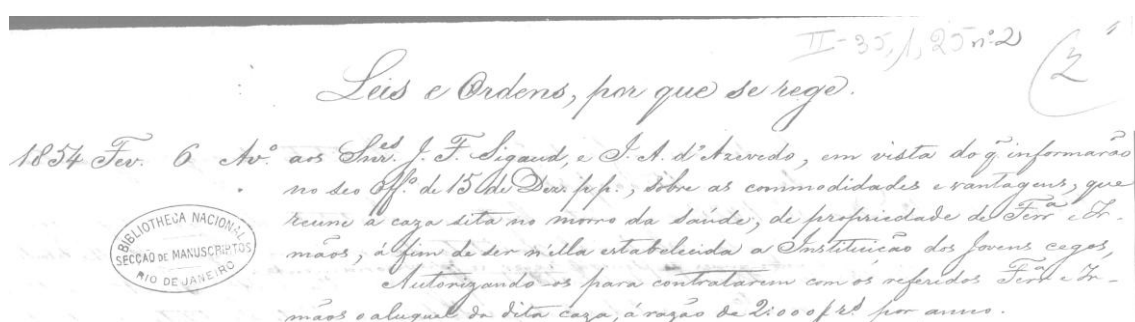 II-35,1,25 nº 2
(2
Leis e Ordens, por que se rege.
1854 Fev. 6 Avº aos Snres. J. F. Sigaud, e J. A. d'Azevedo, em vista do q̃ informarão
no seo Offº de 15 de Dez. p.p., sobre as commodidades e vantagens, que
reune a caza sita no morro da Saúde, de propriedade de Ferrª e Ir-
mãos, á fim de ser n'ella estabelecida a Instituição dos Jovens cegos,
Autorizando-os para contratarem com os referidos Ferrª e Ir-
mãos o aluguel da dita caza, á razão de 2:000$ rs. por anno.
BIBLIOTHECA NACIONAL
SECÇÃO DE MANUSCRIPTOS
RIO DE JANEIRO